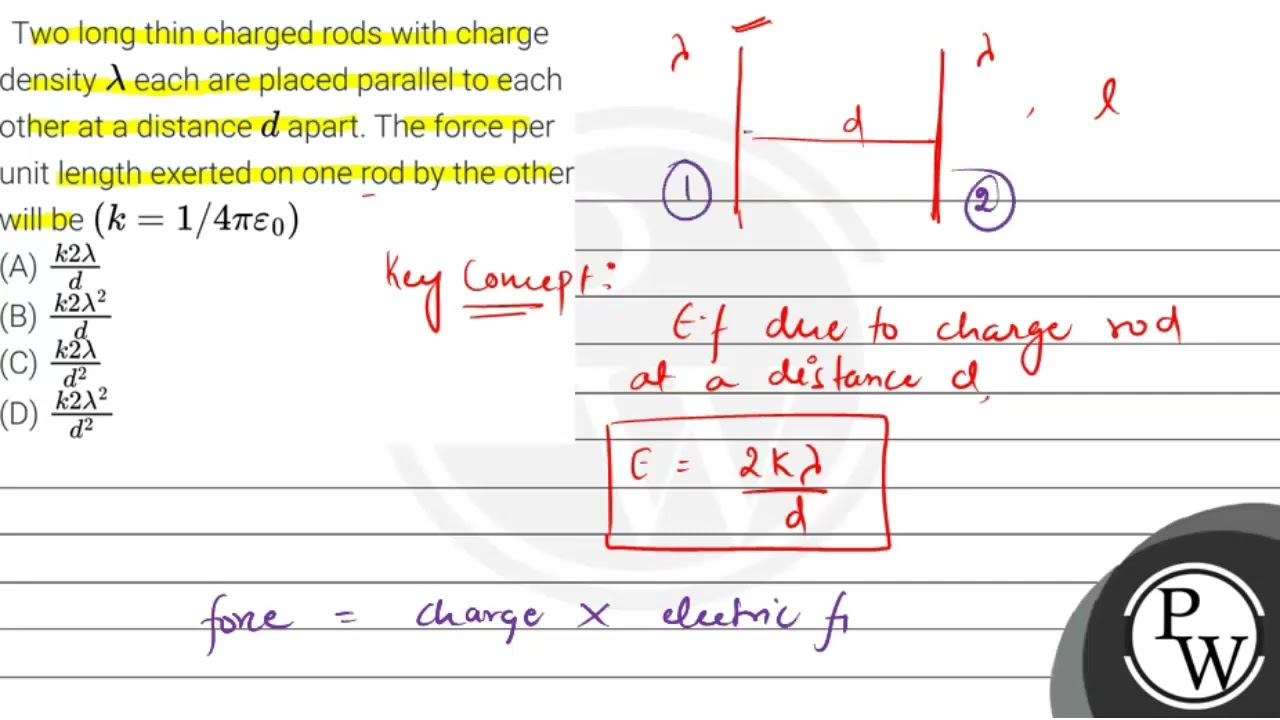 Two long thin charged rods with charge
density λ each are placed parallel to each
other at a distance d apart. The force per
unit length exerted on one rod by the other
will be (k = 1/4πε₀)
(A) k2λ/d
(B) k2λ²/d
(C) k2λ/d²
(D) k2λ²/d²
λ λ
d , l
1 2
Key Concept:
E.f due to charge rod
at a distance d,
E = 2Kλ/d
force = charge × electric fi
PW
P
W